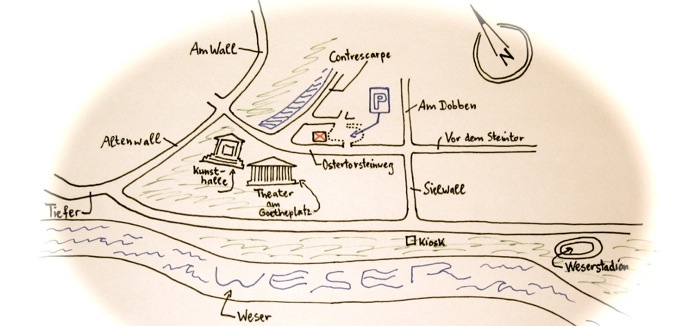 Am Wall
Contrescarpe
N
P
Am Dobben
Altenwall
Vor dem Steintor
Kunst-
halle
Ostertorsteinweg
Theater
am
Goetheplatz
Sielwall
Tiefer
Kiosk
WESER
Weserstadion
Weser